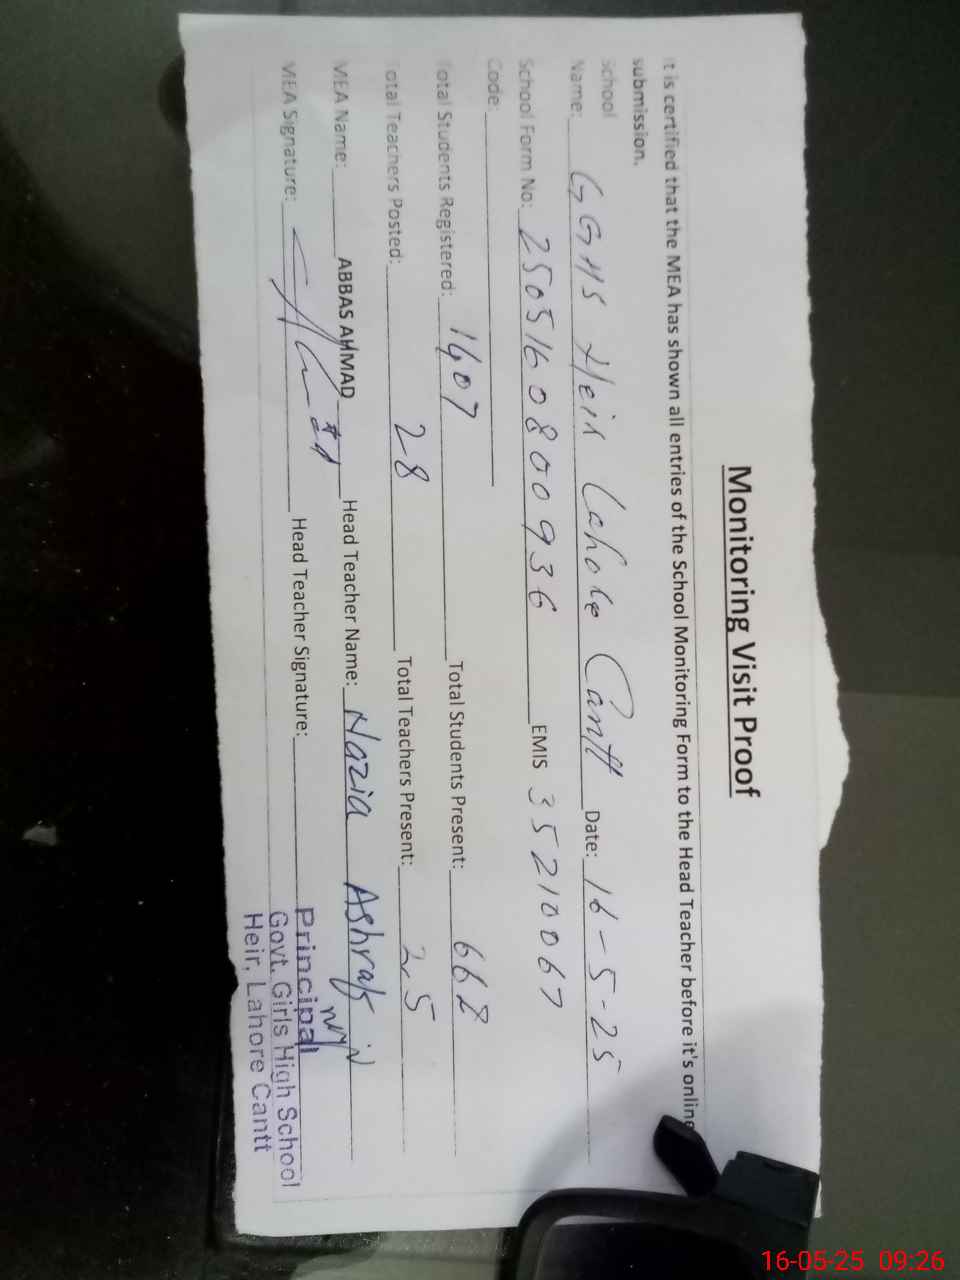 Monitoring Visit Proof
It is certified that the MEA has shown all entries of the School Monitoring Form to the Head Teacher before it's online
submission.
School
Name: GGHS Heir Lahore Cantt Date: 16-5-25
School Form No: 2505160800936 EMIS 35210067
Code:
Total Students Registered: 1407 Total Students Present: 668
Total Teachers Posted: 28 Total Teachers Present: 25
MEA Name: ABBAS AHMAD Head Teacher Name: Nazia Ashraf
MEA Signature: Head Teacher Signature:
Principal
Govt. Girls High School
Heir, Lahore Cantt
16-05-25 09:26